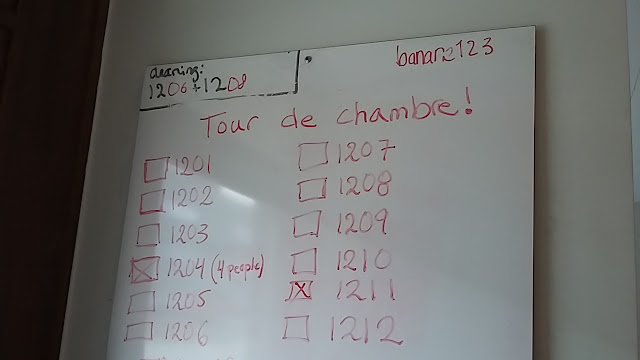 cleaning:
1206+1208
banane123
Tour de chambre!
1201
1202
1203
1204 (4 people)
1205
1206
1207
1208
1209
1210
1211
1212